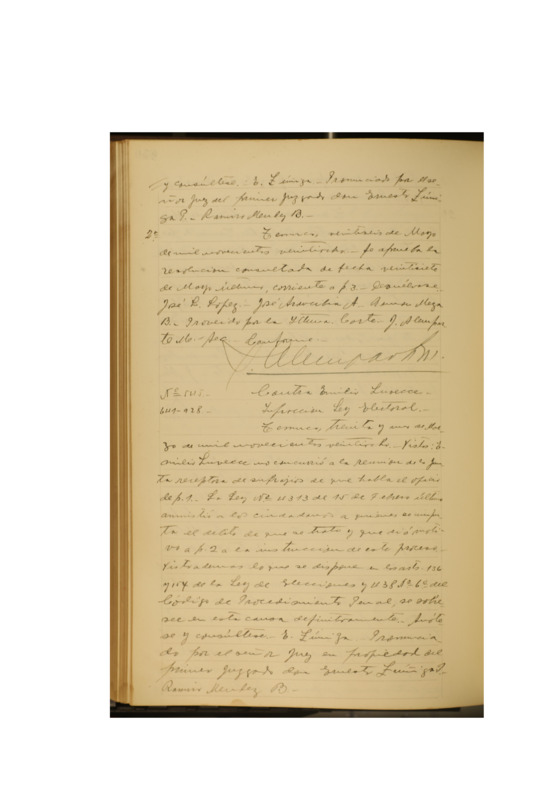 y consúltese. E. Zúñiga. Pronunciado por el se-
ñor Juez del primer juzgado don Ernesto Zúñi-
ga P. - Ramiro Mendez B. -
2a Temuco, veintiseis de Mayo
de mil novecientos veintiocho. - Se aprueba la
resolucion consultada de fecha
de Mayo último, corriente a f 3. - Devuélvase.
José D. Lopez. - José Aravena A. Roman Vega
B. - Proveido por la Iltma. Corte. J. Alempar
te M. Sec. Conforme. -
J. Alemparte M.
Nº Contra Emilio -
Infraccion Ley Electoral. -
Temuco, treinta y uno de Mar-
zo de mil novecientos veintiocho. - Vistos: E-
milio no concurrió a la reunion de la Jun
ta receptora de sufrajios de que habla el oficio
de f. 1. - La Ley Nº 4313 de 10 de Febrero último
amnistió a los ciudadanos a quienes se impu-
ta el delito de que se trata y que dió moti-
vo a f 2 a la instruccion de este proceso.
Visto ademas lo que se dispone en los arts. 136
y 154 de la Ley de Elecciones y 438 Nº 6º del
Código de Procedimiento Penal, se sobre
see en esta causa definitivamente. Anóte
se y consúltese. E. Zúñiga. - Pronuncia
do por el señor Juez en propiedad del
primer juzgado don Ernesto Zúñiga P.
Ramiro Mendez B. -